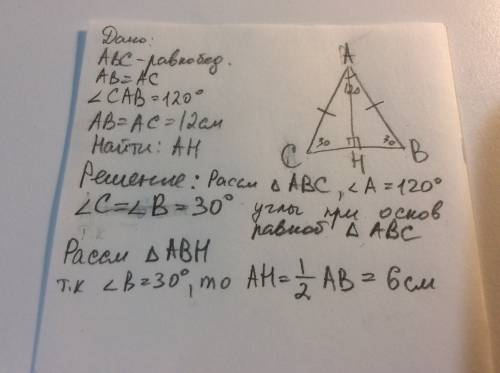 Дано:
ABC - равнобед.
AB=AC
∠CAB=120°
AB=AC=12см
Найти: AH
A
120
30
30
C
H
B
Решение: Рассм △ABC, ∠A=120°
∠C=∠B=30° углы при основ
равноб △ABC
Рассм △ABH
т.к ∠B=30°, то AH=1/2 AB = 6см